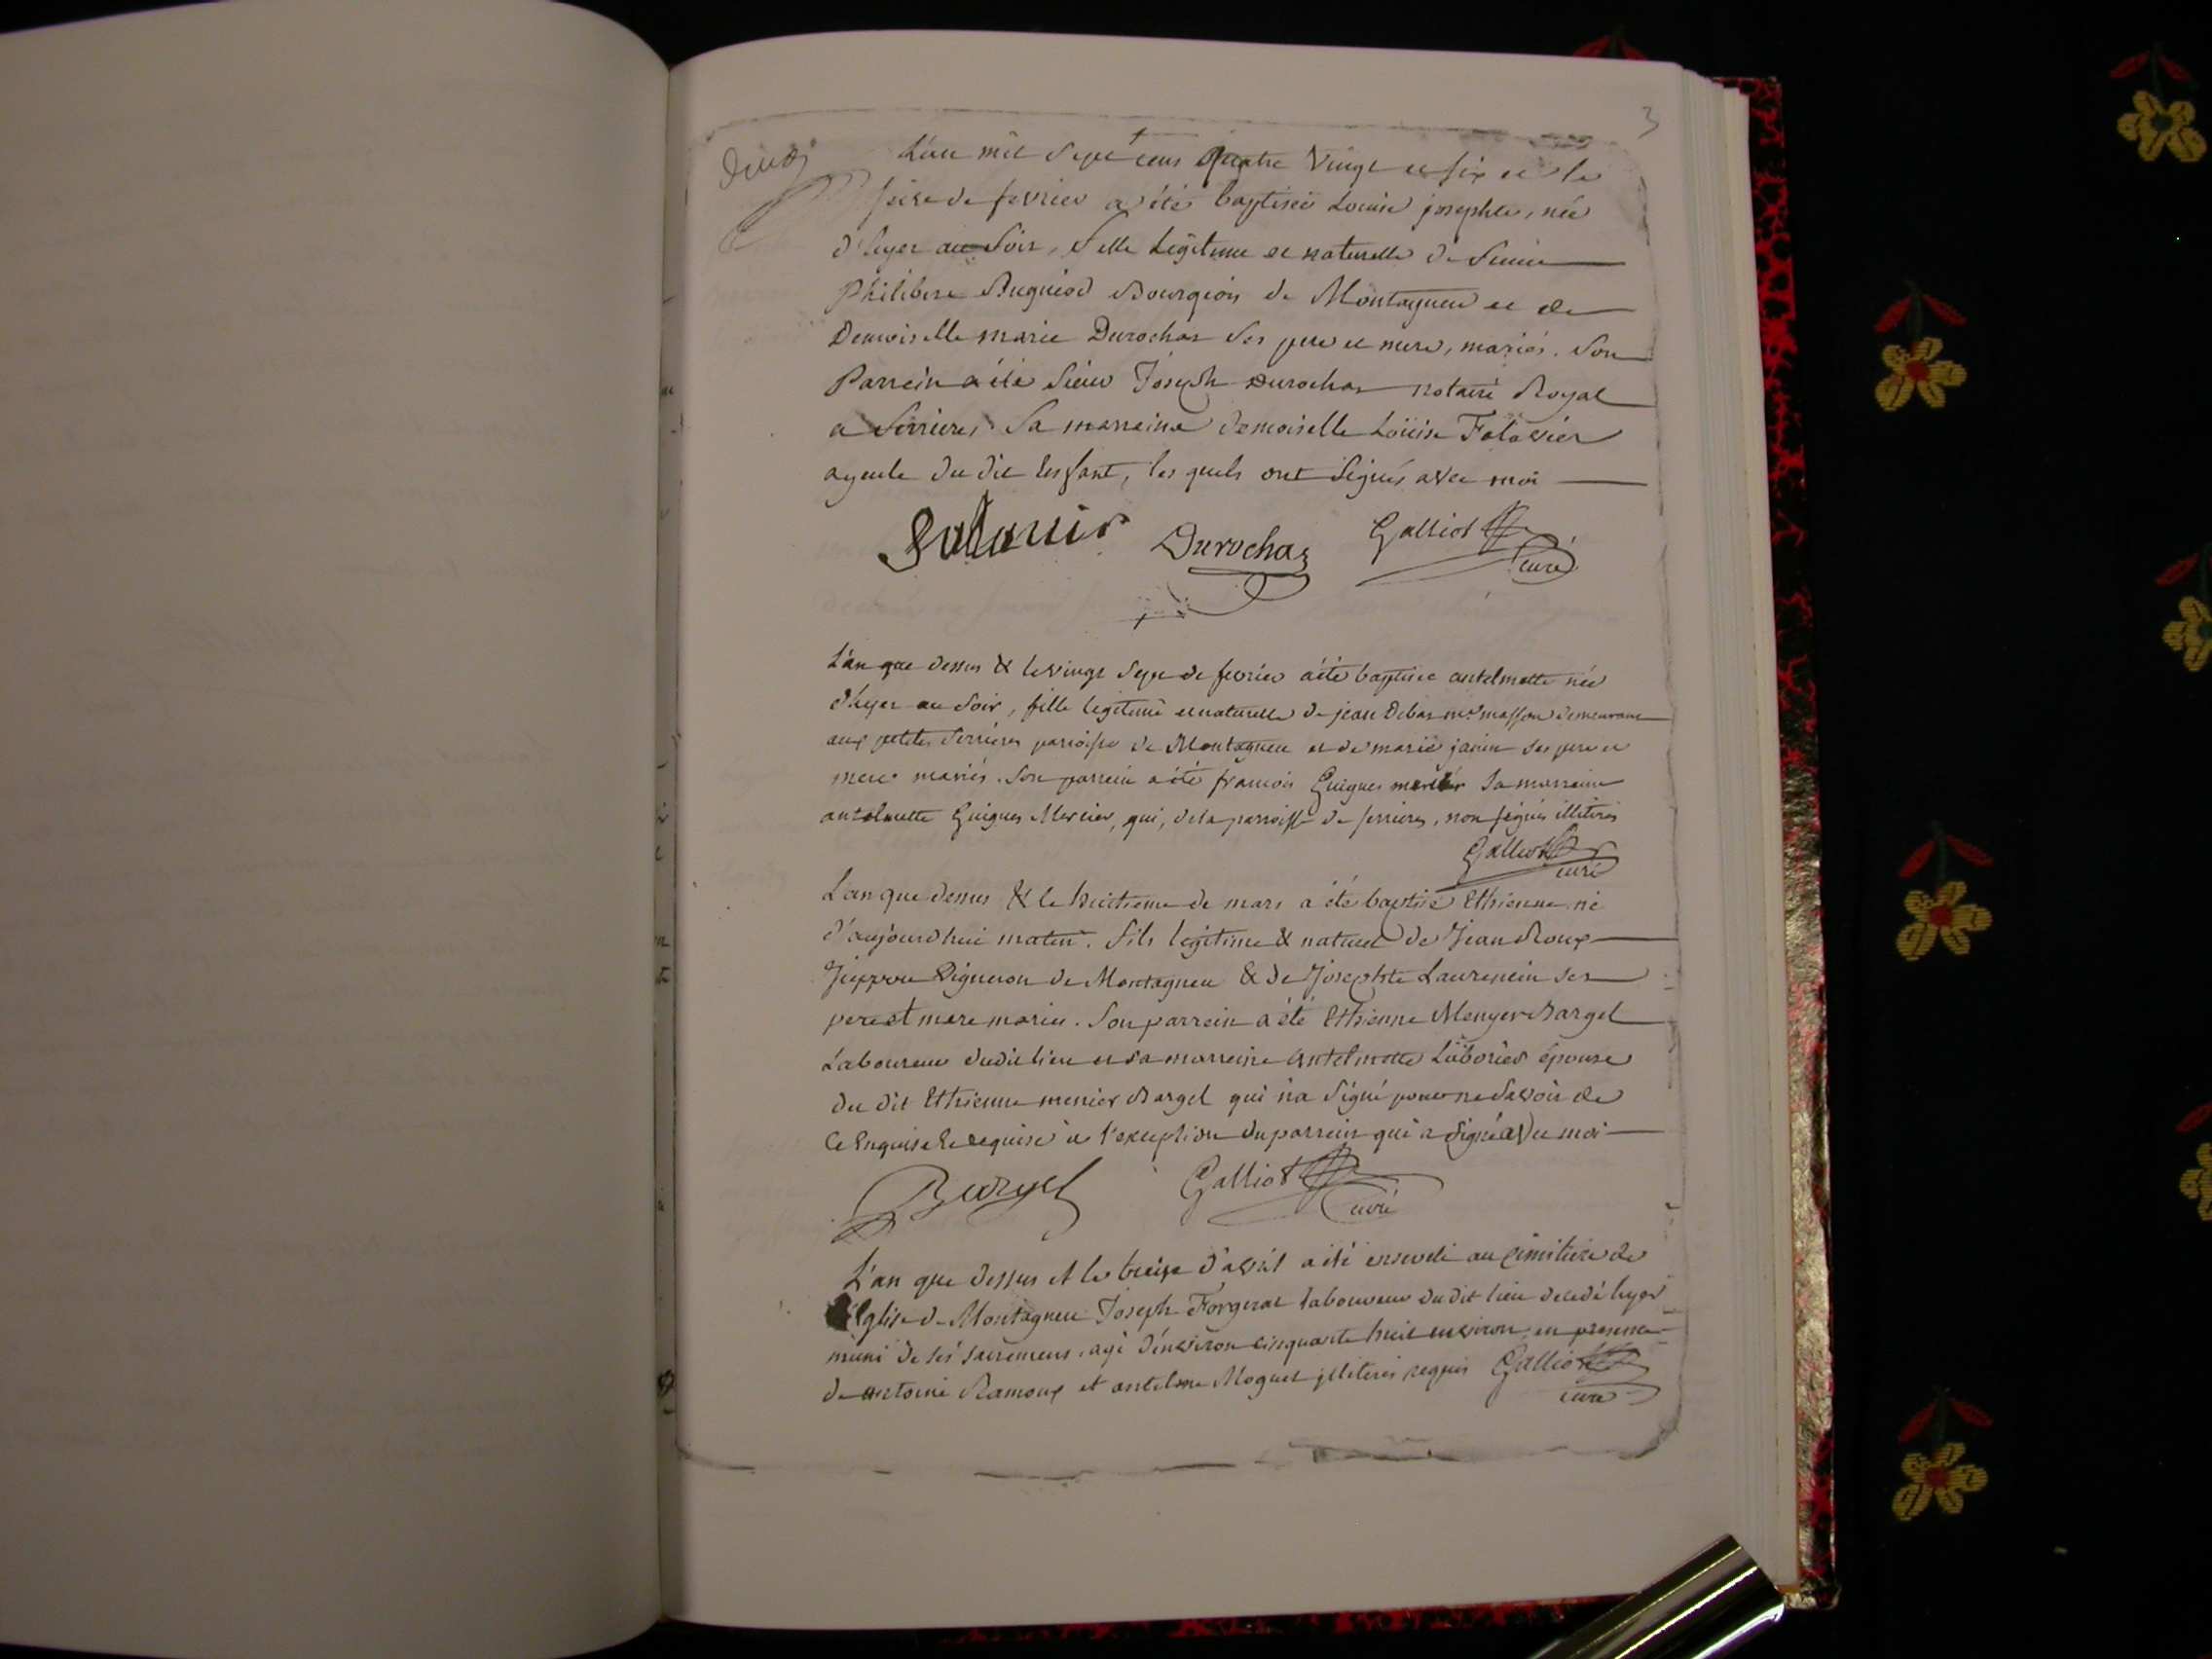 3
L'an mil sept cens quatre vingt et six et le
seize de fevrier a été baptisée Louise josephte, née
d'hyer au soir, fille légitime et naturelle de sieur
Philibert Buguiod Bourgeois de Montagneu et de
Demoiselle marie Durochas ses pere et mere, mariés. Son
Parrein a été sieur Joseph Durochas notaire Royal
a Serrieres Sa marreine demoiselle Loüise Falavier
ayeule du dit enfant, les quels ont signés avec moi
Falavier Durochas Galliot curé
L'an que dessus & le vingt sept de fevrier a été baptisée antelmette née
d'hyer au soir, fille legitime et naturelle de jean Debas me masson demeurant
aux petites Serrieres parroisse de Montagneu et de marie janin ses pere et
mere mariés. Son parrein a été francois Guigues mercier sa marreine
antelmette Guigues Mercier, qui, de la parroisse de serrieres, non signés illiterés
Galliot
curé
L'an que dessus & le huitieme de mars a été baptisé Ethienne né
d'aujourdhui matin. Fils legitime & naturel de Jean Roux
vigneron de Montagneu & de Josephte Laurencin ses
pere et mere mariés. Son parrein a été Ethienne Menyer Bargel
Laboureur du dit lieu et sa marreine antelmette épouse
du dit Ethienne menier Bargel qui n'a signé pour ne savoir de
ce enquise & requise a l'exception du parrein qui a signé avec moi
Bargel Galliot
curé
L'an que dessus et le treize d'avril a été enseveli au cimitiere de
l'Eglise de Montagneu Joseph Forgerat laboureur du dit lieu decedé hyer
muni de ses sacremens, agé d'environ cinquante huit environ en presence
de antoine Ramoux et antelme Moguet illiterés requis Galliot
curé